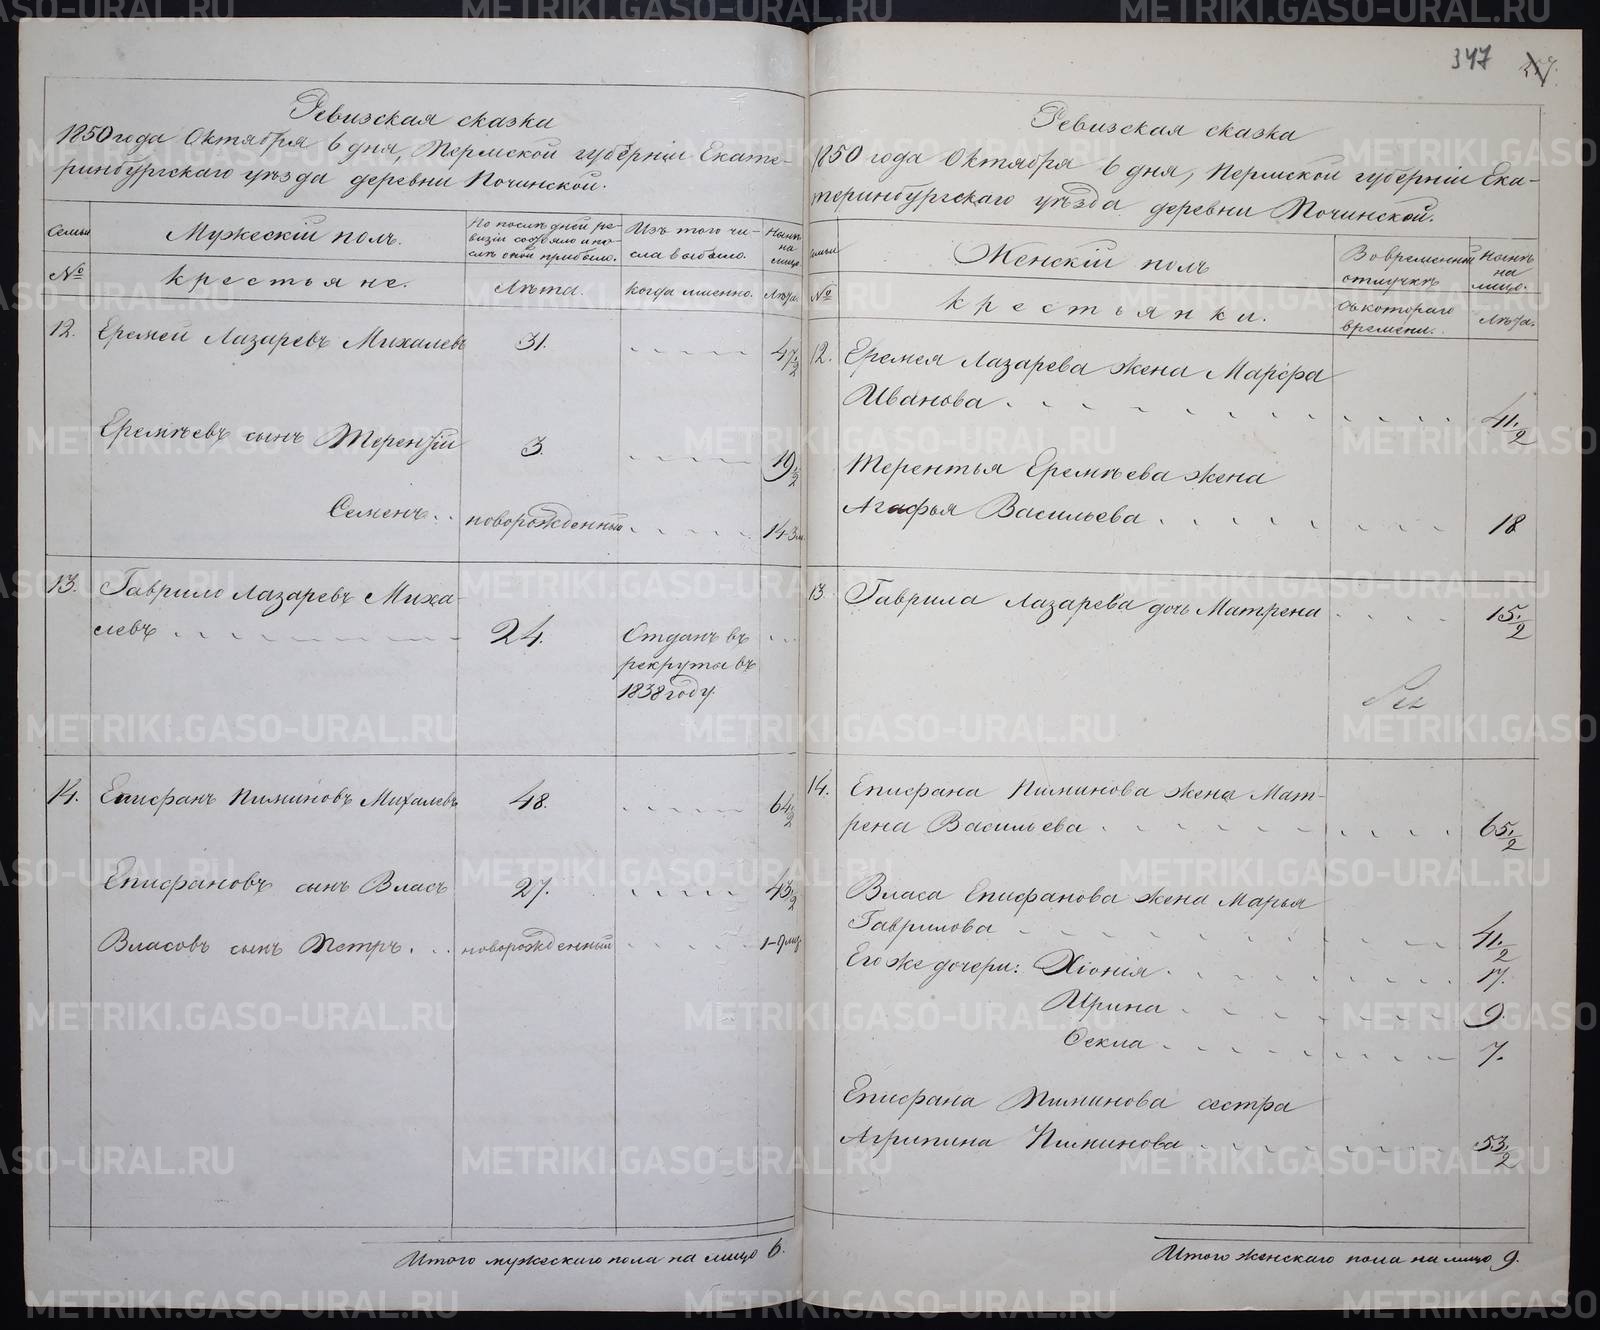 347
Ревизская сказка
1850 года Октября 6 дня, Пермской губерніи Екате-
ринбургскаго уѣзда деревни Починской.
Семьи
№
Мужескій полъ.
Крестьяне.
По последней ре-
визіи состояло и по-
слѣ оной прибыло.
Лѣта.
Изъ того чи-
сла выбыло.
Когда именно.
Нынѣ
на
лицо
Лѣта.
12. Еремей Лазаревъ Михалевъ 31. 47 1/2
Еремѣевъ сынъ Терентій 3. 19 1/2
Семенъ новорожденный 14-3 м.
13. Гаврило Лазаревъ Миха-
левъ 24. Отданъ въ
рекруты въ
1838 году.
14. Епифанъ Пиминовъ Михалевъ 48. 64 1/2
Епифановъ сынъ Власъ 27. 43 1/2
Власовъ сынъ Петръ новорожденный 1-9 мц.
Итого мужескаго пола на лицо 6.
Ревизская сказка
1850 года Октября 6 дня, Пермской губерніи Ека-
теринбургскаго уѣзда деревни Починской.
Семьи
№
Женскій полъ
Крестьянки.
Во временной
отлучкѣ
Съ котораго
времени.
Нынѣ
на
лицо.
Лѣта.
12. Еремея Лазарева жена Марѳра
Иванова 41 1/2
Терентья Еремѣева жена
Агафья Васильева 18
13. Гаврила Лазарева дочь Матрена 15 1/2
14. Епифана Пиминова жена Мат-
рена Васильева 65 1/2
Власа Епифанова жена Марья
Гаврилова 41 1/2
Его же дочери: Хіонія 17.
Ирина 9.
Ѳекла 7.
Епифана Пиминова сестра
Агрипина Пиминова 53 1/2
Итого женскаго пола на лицо 9.
METRIKI.GASO-URAL.RU